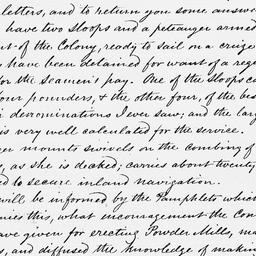 letters, and to return you some answer
have two sloops and a peteauger armed
of the Colony, ready to sail on a cruize
have been detained for want of a reg
for the seamen's pay. One of the sloops ca
four pounders, & the other four, of the bes
denominations I ever saw; and the lar
is very well calculated for the service.
mounts swivels on the combing of
, as she is decked; carries about twenty
to secure inland navigation.
will be informed by the Pamphlets which
this, what incouragement the Con
have given for erecting Powder Mills, ma
, and diffused the knowledge of makin